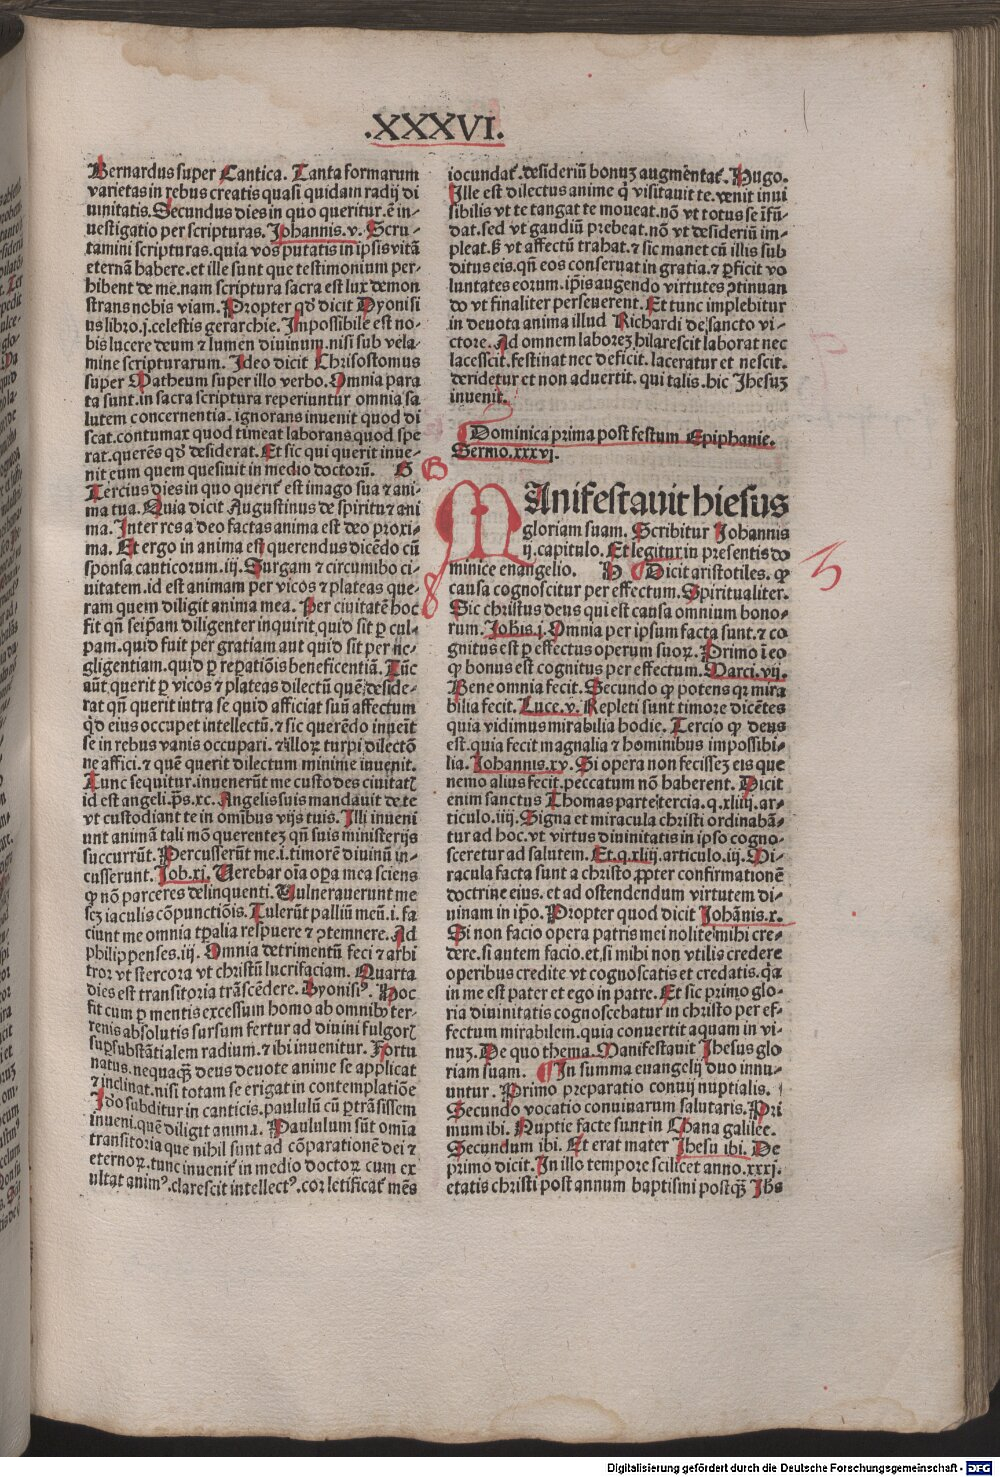 .XXXVI.
Bernardus super Cantica. Tanta formarum
varietas in rebus creatis quasi quidam radij di
uinitatis. Secundus dies in quo queritur. ē in-
uestigatio per scripturas. Johannis. v. Scru-
tamini scripturas. quia vos putatis in ipsis vitā
eternā habere. et ille sunt que testimonium per-
hibent de me. nam scriptura sacra est lux demon
strans nobis viam. Propter qd̄ dicit Dyonisi
us libro. j. celestis gerarchie. Impossibile est no-
bis lucere deum ⁊ lumen diuinum. nisi sub vela-
mine scripturarum. Ideo dicit Chrisostomus
super Matheum super illo verbo. Omnia para
ta sunt. in sacra scriptura reperiuntur omnia sa
lutem concernentia. ignorans inuenit quod di
scat. contumax quod timeat laborans. quod spe
rat. querēs qd̄ desiderat. Et sic qui querit inue-
nit eum quem quesiuit in medio doctorū. G
Tercius dies in quo querit̄ est imago sua ⁊ ani-
ma tua. Quia dicit Augustinus de spiritu ⁊ ani
ma. Inter res a deo factas anima est deo proxi-
ma. Et ergo in anima est querendus dicēdo cū
sponsa canticorum. iij. Surgam ⁊ circumibo ci-
uitatem. id est animam per vicos ⁊ plateas que-
ram quem diligit anima mea. Per ciuitatē hoc
fit qn̄ seip̄am diligenter inquirit. quid sit ꝑ cul-
pam. quid fuit per gratiam aut quid sit per ne-
gligentiam. quid ꝑ reꝑatiōis beneficentiā. Tūc
aūt querit ꝑ vicos ⁊ plateas dilectū quē deside-
rat qn̄ querit intra se quid afficiat suū affectum
q̇d eius occupet intellectū. ⁊ sic querēdo inuen̄t
se in rebus vanis occupari. ⁊ illoꝝ turpi dilectō
ne affici. ⁊ quē querit dilectum minime inuenit.
Tunc sequitur. inuenerūt me custodes ciuitat̄
id est angeli. p̄s. xc. Angelis suis mandauit de te
vt custodiant te in om̄ibus vijs tuis. Illi inueni
unt animā tali mō querentez qn̄ suis ministerijs
succurrūt. Percusserūt me. i. timorē diuinū in-
cusserunt. Job. xi. Verebar oīa oꝑa mea sciens
ꝙ nō parceres delinquenti. Vulnerauerunt me
scz iaculis cōpunctiōis. Tulerūt palliū meū. i. fa
ciunt me omnia tꝑalia respuere ⁊ ꝯtemnere. Ad
philippenses. iij. Omnia detrimentū feci ⁊ arbi
tror vt stercora vt christū lucrifaciam. Quarta
dies est transitoria trāscēdere. Dyonisiꝰ. Hoc
fit cum ꝑ mentis excessum homo ab omnibꝰ ter-
renis absolutis sursum fertur ad diuini fulgor̄
suꝑsubstātialem radium. ⁊ ibi inuenitur. Fortu
natus. nequaq̄ꝫ deus deuote anime se applicat
⁊ inclinat. nisi totam se erigat in contemplatiōe
Ido subditur in canticis. paululū cū ꝑtrāsissem
inueni. quē diligit anima. Paululum sūt omīa
transitoria que nihil sunt ad cōparationē dei ⁊
eternoꝝ. tunc inuenit̄ in medio doctoꝝ cum ex
ultat animꝰ. clarescit intellectꝰ. cor letificat̄ mēs
iocundat̄. desideriū bonuꝫ augmētat̄. Hugo.
Ille est dilectus anime q̇ visitauit te. venit inui
sibilis vt te tangat te moueat. nō vt totus se īfū-
dat. sed vt gaudiū prebeat. nō vt desideriū im-
pleat. ß vt affectū trahat. ⁊ sic manet cū illis sub
ditus eis. qn̄ eos conseruat in gratia. ⁊ ꝑficit vo
luntates eorum. ip̄is augendo virtutes ꝯtinuan
do vt finaliter perseuerent. Et tunc implebitur
in deuota anima illud Richardi de sancto vi-
ctore. Ad omnem laboreꝫ hilarescit laborat nec
lacescit. festinat nec deficit. laceratur et nescit.
deridetur et non aduertit. qui talis. hic Jhesuꝫ
inuenit.
Dominica prima post festum Epiphanie.
Sermo. xxxvj.
MAnifestauit hiesus
gloriam suam. Scribitur Johannis
ij. capitulo. Et legitur in presentis do
minice euangelio. H Dicit aristotiles. ꝙ
causa cognoscitur per effectum. Spiritualiter.
Sic christus deus qui est causa omnium bono-
rum. Joh̄is. j. Omnia per ipsum facta sunt. ⁊ co
gnitus est ꝑ effectus operum suoꝝ. Primo ī eo
ꝙ bonus est cognitus per effectum. Marci. vij.
Bene omnia fecit. Secundo ꝙ potens qꝛ mira
bilia fecit. Luce. v. Repleti sunt timore dicētes
quia vidimus mirabilia hodie. Tercio ꝙ deus
est. quia fecit magnalia ⁊ hominibus impossibi-
lia. Johannis. xv. Si opera non fecisseꝫ eis que
nemo alius fecit. peccatum nō haberent. Dicit
enim sanctus Thomas parte tercia. q. xliiij. ar-
ticulo. iiij. Signa et miracula christi ordinabā-
tur ad hoc. vt virtus diuinitatis in ipso cogno-
sceretur ad salutem. Et. q. xliij. articulo. iij. Mi-
racula facta sunt a christo ꝓpter confirmationē
doctrine eius. et ad ostendendum virtutem di-
uinam in ip̄o. Propter quod dicit Johānis. x.
Si non facio opera patris mei nolite mihi cre-
dere. si autem facio. et. si mihi non vtilis credere
operibus credite vt cognoscatis et credatis. q̄a
in me est pater et ego in patre. Et sic primo glo-
ria diuinitatis cognoscebatur in christo per ef-
fectum mirabilem. quia conuertit aquam in vi-
nuꝫ. De quo thema. Manifestauit Jhesus glo
riam suam. In summa euangelij duo innu-
untur. Primo preparatio conuij nuptialis.
Secundo vocatio conuiuarum salutaris. Pri
mum ibi. Nuptie facte sunt in Chana galilee.
Secundum ibi. Et erat mater Jhesu ibi. De
primo dicit. In illo tempore scilicet anno. xxxj.
etatis christi post annum baptisini postq̄ꝫ Jh̄s
Digitalisierung gefördert durch die Deutsche Forschungsgemeinschaft - DFG